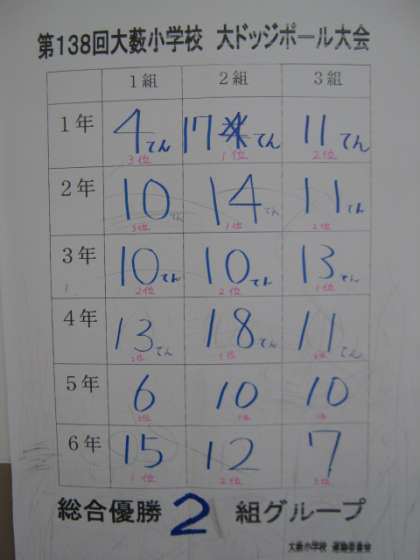 第138回大薮小学校 大ドッジボール大会
1組 2組 3組
1年 4てん 17てん 11てん
3位 1位 2位
2年 10てん 14てん 11てん
3位 1位 2位
3年 10てん 10てん 13てん
2位 2位 1位
4年 13てん 18てん 11てん
2位 1位 3位
5年 6 10 10
3位 1位 1位
6年 15 12 7
1位 2位 3位
総合優勝 2 組グループ
大薮小学校 運動委員会